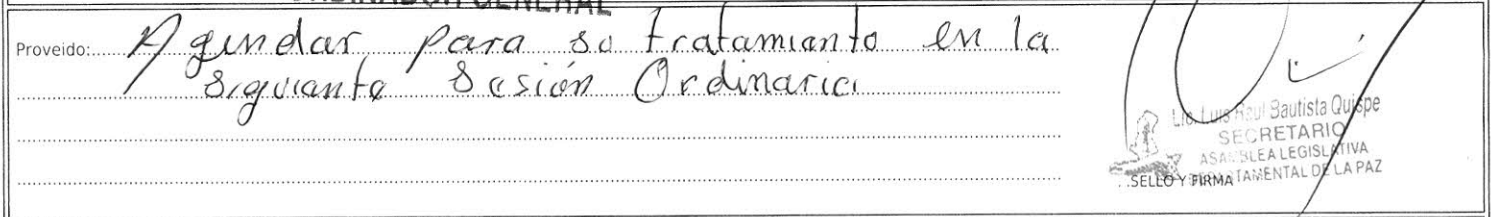 GENERAL
Proveido: Agendar para su tratamianto en la
siguiante Sesión Ordinaria
Lic. Luis Raul Bautista Quispe
SECRETARIO
ASAMBLEA LEGISLATIVA
DEPARTAMENTAL DE LA PAZ
SELLO Y FIRMA